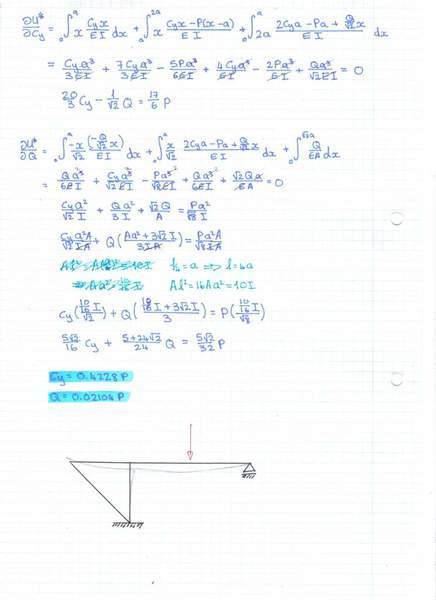 ∂U*/∂Cy = ₀∫ᵃ x Cyx/EI dx + ₀∫²ᵃ x Cyx-P(x-a)/EI + ₀∫ᵃ 2a 2Cya-Pa+Q/√2 x/EI dx
= Cya³/3EI + 7Cya³/3EI - 5Pa³/6EI + 4Cya³/EI - 2Pa³/EI + Qa³/√2EI = 0
20/3 Cy - 1/√2 Q = 17/6 P
∂U*/∂Q = ₀∫ᵃ -x/√2 (-Q/√2 x)/EI dx + ₀∫ᵃ x/√2 2Cya-Pa+Q/√2 x/EI dx + ₀∫^√2a Q/EA dx
= Qa³/6EI + Cya³/√2EI - Pa³/√8EI + Qa³/6EI + √2Qa/EA = 0
Cya²/√2 I + Qa²/3 I + √2Q/A = Pa²/√8 I
Cya²A/√2 IA + Q(Aa²+3√2I/3IA) = Pa²A/√8 IA
l/4 = a => l = 4a
Al² = 16Aa² = 10I
Cy(10/16 I/√2) + Q(10/16 I + 3√2I/3) = P(10/16 I/√8)
5√2/16 Cy + 5+24√2/24 Q = 5√2/32 P
Cy = 0.4228 P
Q = 0.02104 P